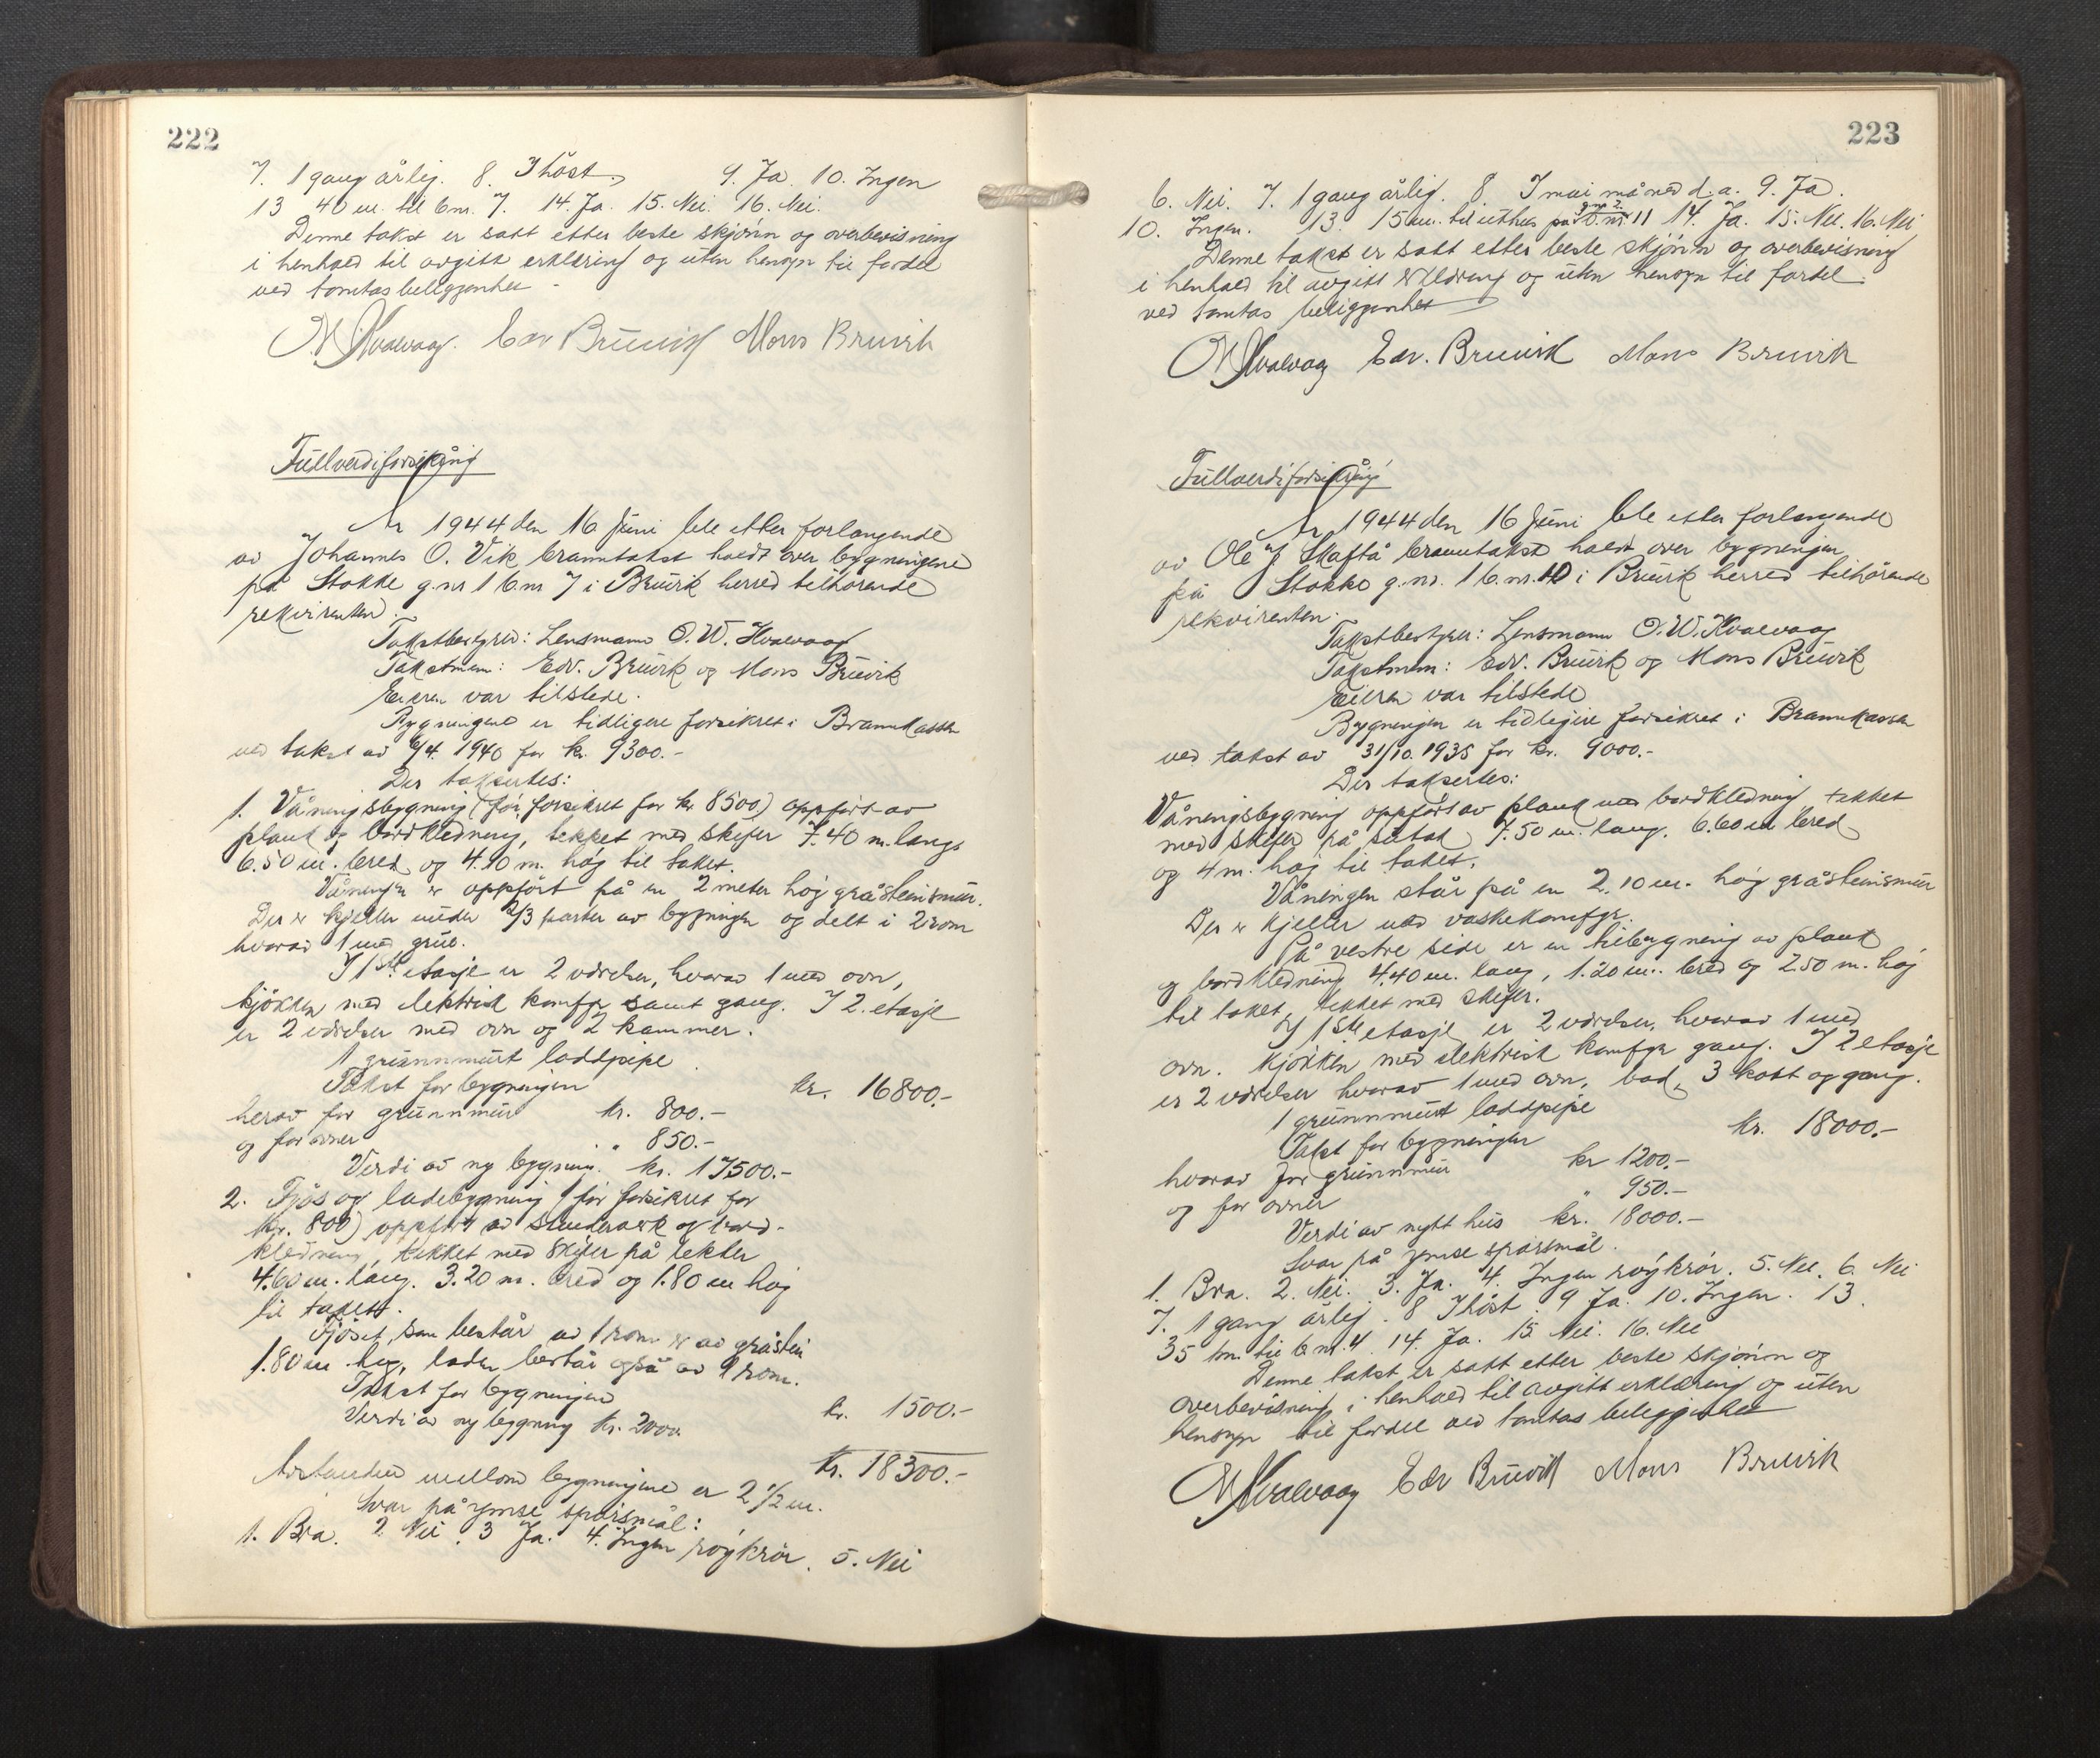 222
7. 1 gang årlig. 8. I höst. 9. Ja. 10. Ingen
13 40 m. til b.nr. 7. 14. Ja. 15. Nei. 16. Nei.
Denne takst er satt etter beste skjönn og overbevisning
i henhold til avgitt erklæring og uten hensyn til fordel
ved tomtas beliggenhet -
O.W. Hvalvaag. Edv Bruvik Mons Bruvik
Fullverdiforsikring
År 1944 den 16 Juni ble etter forlangende
av Johannes O. Vik branntakst holdt over bygningene
på Stokke g.nr 1 b.nr 7 i Bruvik herred tilhörende
rekvirenten.
Takstbestyrer: Lensmann O. W. Hvalvaag
Takstmenn: Edv. Bruvik og Mons Bruvik
Eieren var tilstede.
Bygningene er tidligere forsikret i Brannkassen
ved takst av 6/4. 1940 for kr. 9300.-
Der taksertes:
1. Våningsbygning (för forsikret for kr 8500) oppfört av
plank og bordkledning, tekket med skifer 7.40 m. lang,
6.50 m. bred og 4.10 m. hög til taket.
Våningen er oppfört på en 2 meter hög gråsteinsmur.
Der er kjeller under 2/3 parter av bygningen og delt i 2 rom
hvorav 1 med grue.
I 1ste etasje er 2 værelser, hvorav 1 med ovn,
kjökken med elektrisk komfyr samt gang. I 2. etasje
er 2 værelser med ovn og 2 kammer.
1 grunnmurt loddpipe.
Takst for bygningen kr. 16800.-
herav for grunnmur kr. 800.-
og for ovner " 850.-
Verdi av ny bygning. kr. 17500.-
2. Fjös og ladebygning (för forsikret for
kr. 800) oppfört av stenderverk og bord-
kledning, tekket med skifer på lekter
4.60 m. lang. 3.20 m. bred og 1.80 m höy
til taket.
Fjöset, som består av 1 rom er av gråstein
1.80 m. höy, laden består også av 1 rom.
Takst for bygningen kr. 1500.-
Verdi av ny bygning kr. 2000.
kr. 18300.-
Avstanden mellom bygningene er 2 1/2 m.
Svar på ymse spörsmål:
1. Bra. 2 Nei. 3 Ja. 4. Ingen röykrör. 5. Nei
223
6. Nei. 7. 1 gang årlig. 8 I mai måned d.a. 9. Ja.
g.nr 2.
10. Ingen. 13. 15 m. til uthus på b.nr 11 14. Ja. 15. Nei. 16. Nei
Denne takst er satt etter beste skjönn og overbevisning
i henhold til avgitt erklæring og uten hensyn til fordel
ved tomtas beliggenhet
O.W. Hvalvaag Edv. Bruvik Mons Bruvik
Fullverdiforsikring
År 1944 den 16 Juni ble etter forlangende
av Ole J. Skaftå branntakst holdt over bygningen
på Stokke g.nr. 1 b.nr. 10 i Bruvik herred tilhörende
rekvirenten.
Takstbestyrer: Lensmann O.W. Hvalvaag
Takstmenn: Edv. Bruvik og Mons Bruvik
Eieren var tilstede
Bygningen er tidligere forsikret i Brannkassen
ved takst av 31/10. 1935 for kr. 9000.-
Der taksertes:
Våningsbygning oppfört av plank med bordkledning, tekket
med skifer på sutak 7.50 m. lang. 6.60 m bred
og 4 m. höy til taket.
Våningen står på en 2.10 m. höy gråsteinsmur
Der er kjeller med vaskekomfyr.
På vestre side er en tilbygning av plank
og bordkledning 4.40 m. lang, 1.20 m. bred og 2.50 m. höy
til taket, tekket med skifer.
I 1ste etasje er 2 værelser, hvorav 1 med
ovn. kjökken med elektrisk komfyr gang. I 2 etasje
er 2 værelser hvorav 1 med ovn, bad, 3 kott og gang.
1 grunnmurt loddpipe
Takst for bygningen kr. 18000.-
hvorav for grunnmur kr 1200.-
og for ovner " 950.-
Verdi av nytt hus kr. 18000.-
Svar på ymse spörsmål.
1. Bra. 2. Nei. 3. Ja. 4. Ingen röykrör. 5. Nei. 6. Nei
7. 1 gang årlig. 8 I höst. 9 Ja. 10. Ingen. 13.
35 m. til b.nr. 4. 14. Ja. 15. Nei. 16. Nei
Denne takst er satt etter beste skjönn og
overbevisning i henhold til avgitt erklæring og uten
hensyn til fordel ved tomtas beliggenhet
O.W. Hvalvaag Edv Bruvik Mons Bruvik